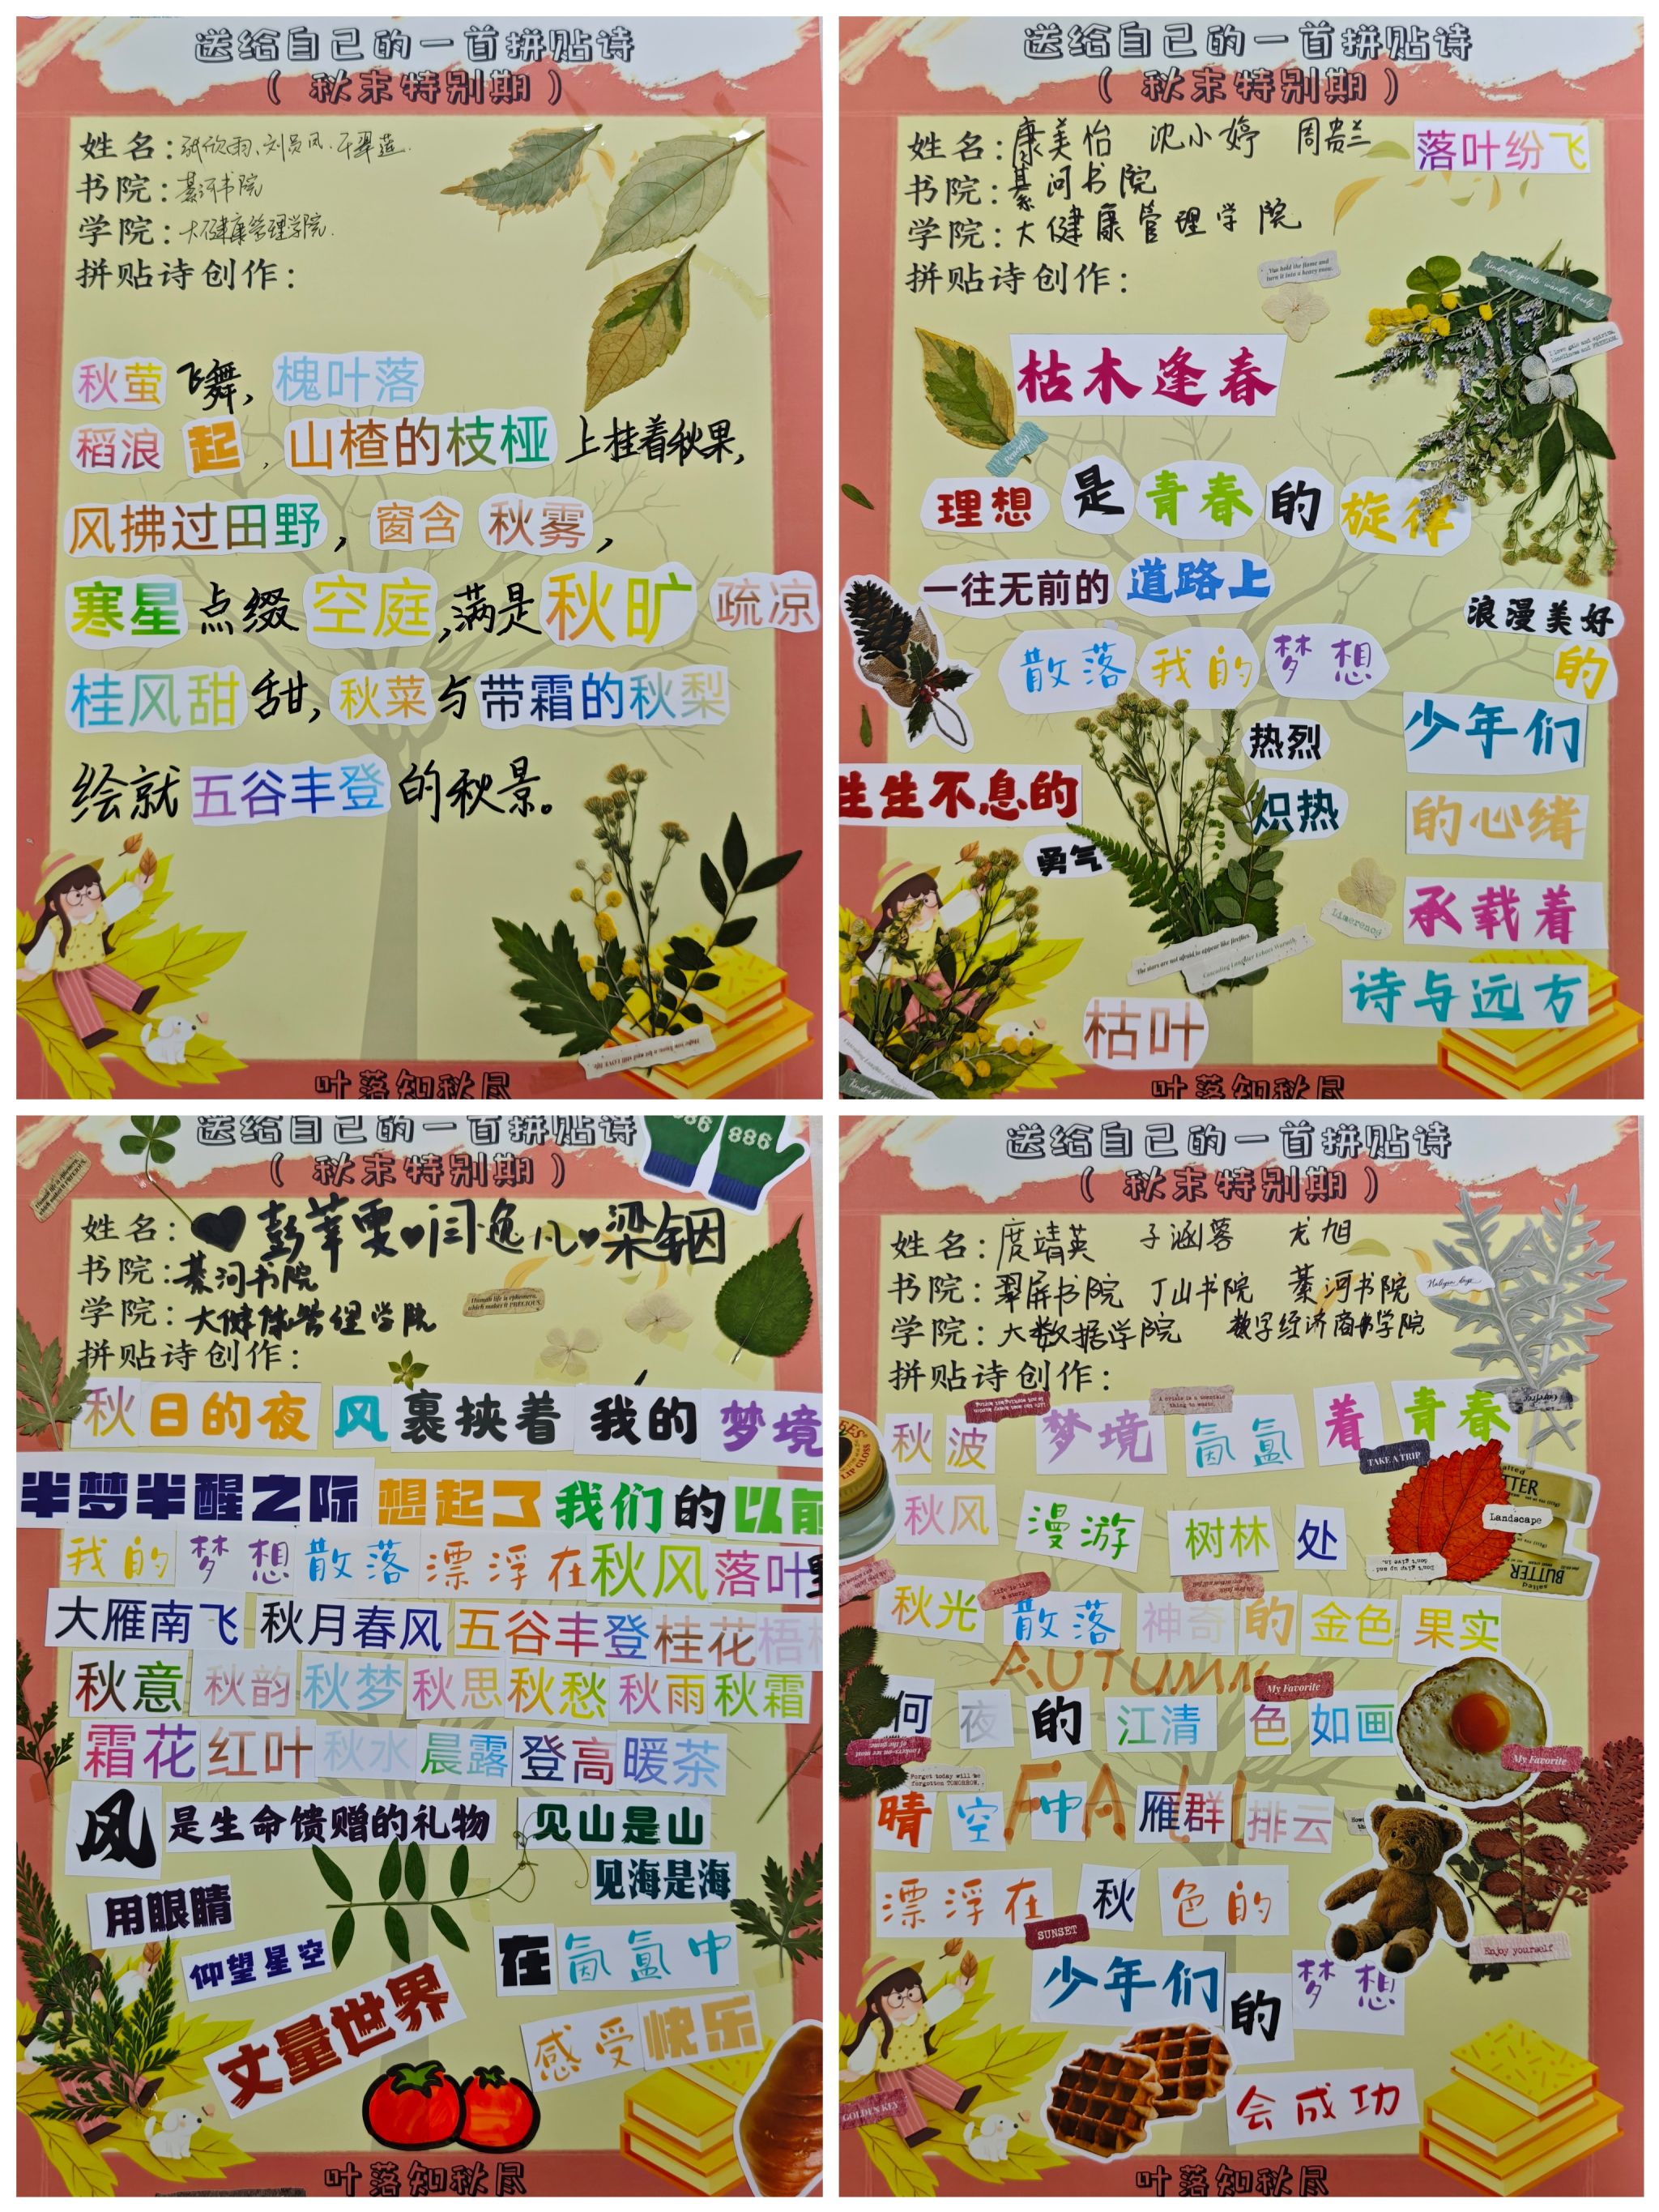 送给自己的一首拼贴诗
（秋末特别期）
姓名：张欣雨、刘员凤、干翠莲.
书院：綦河书院
学院：大健康管理学院.
拼贴诗创作：
秋萤飞舞，槐叶落
稻浪起，山楂的枝桠上挂着秋果，
风拂过田野，窗含秋雾，
寒星点缀空庭，满是秋旷疏凉
桂风甜甜，秋菜与带霜的秋梨
绘就五谷丰登的秋景。
叶落知秋尽
送给自己的一首拼贴诗
（秋末特别期）
姓名：康美怡 沈小婷 周贵兰
落叶纷飞
书院：綦河书院
学院：大健康管理学院
拼贴诗创作：
You hold the flame and
turn it into a heavy snow.
Kindred spirits wander freely
枯木逢春
Powerful
理想是青春的旋律
一往无前的道路上
散落我的梦想
浪漫美好
的
少年们
热烈
生生不息的
炽热
的心绪
勇气
承载着
Limerence
The stars are not afraid to appear like fireflies.
诗与远方
枯叶
叶落知秋尽
送给自己的一首拼贴诗
（秋末特别期）
886
姓名：彭莘雯 闫逸凡 梁铟
书院：綦河书院
学院：大健康管理学院
Human life is ephemeral,
which makes it PRECIOUS.
拼贴诗创作：
秋日的夜风裹挟着我的梦境
半梦半醒之际想起了我们的以前
我的梦想散落漂浮在秋风落叶
大雁南飞秋月春风五谷丰登桂花梧
秋意秋韵秋梦秋思秋愁秋雨秋霜
霜花红叶秋水晨露登高暖茶
风是生命馈赠的礼物 见山是山
见海是海
用眼睛
仰望星空
在氤氲中
丈量世界
感受快乐
叶落知秋尽
送给自己的一首拼贴诗
（秋末特别期）
姓名：庹靖英 子涵蓉 龙旭
书院：翠屏书院 丁山书院 綦河书院
学院：大数据学院 数字经济商学院
拼贴诗创作：
秋波梦境氤氲着青春
LIP GLOSS
TAKE A TRIP
秋风漫游树林处
BUTTER
Landscape
Don't give up and
don't give in.
BUTTER
秋光散落神奇的金色果实
AUTUMN
My Favorite
何夜的江清色如画
Forget today will be
forgotten TOMORROW.
My Favorite
FALL
晴空中雁群排云
漂浮在秋色的
SUNSET
Enjoy yourself
少年们的梦想
会成功
GOLDEN KEY
叶落知秋尽